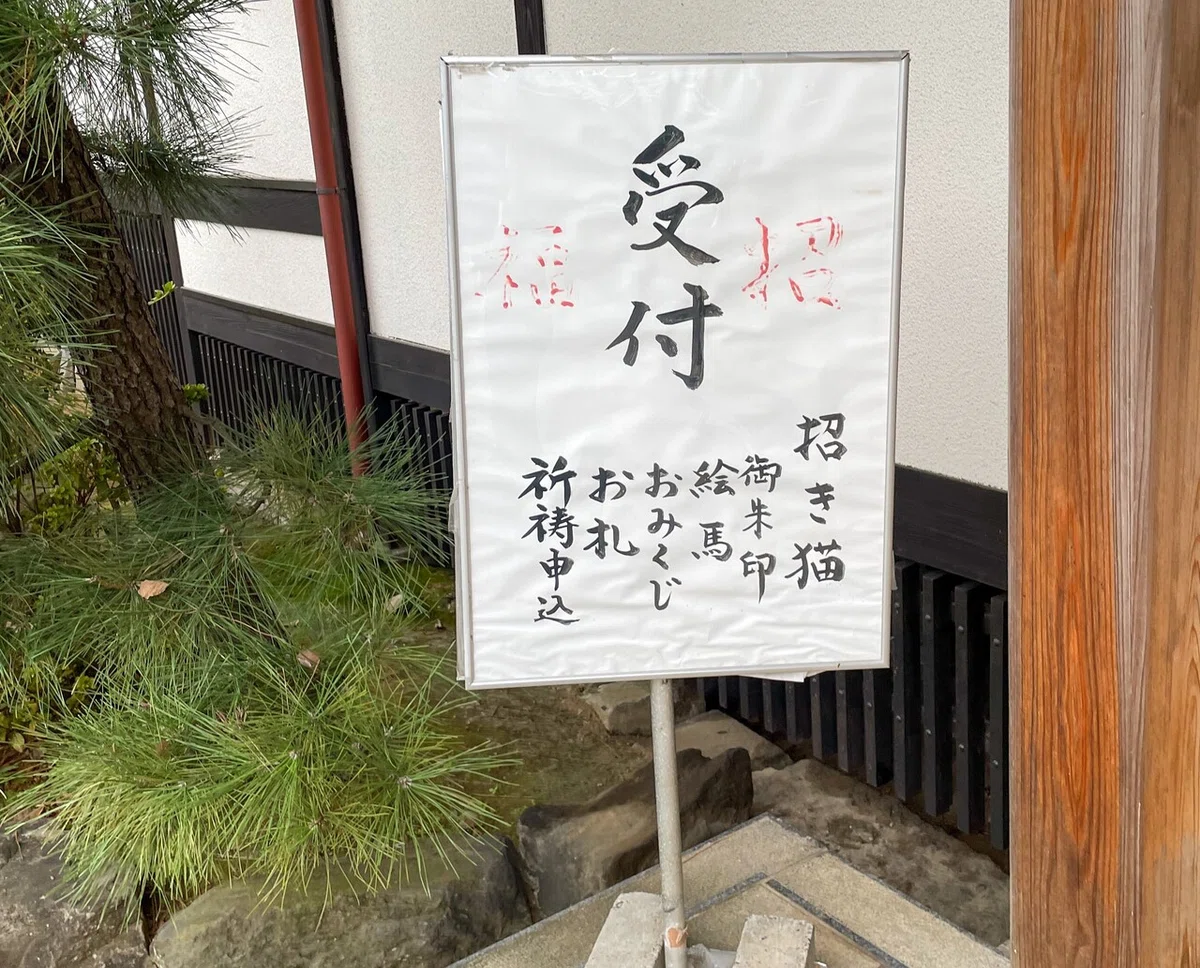 受付
招福
招き猫
御朱印
絵馬
おみくじ
お札
祈祷申込